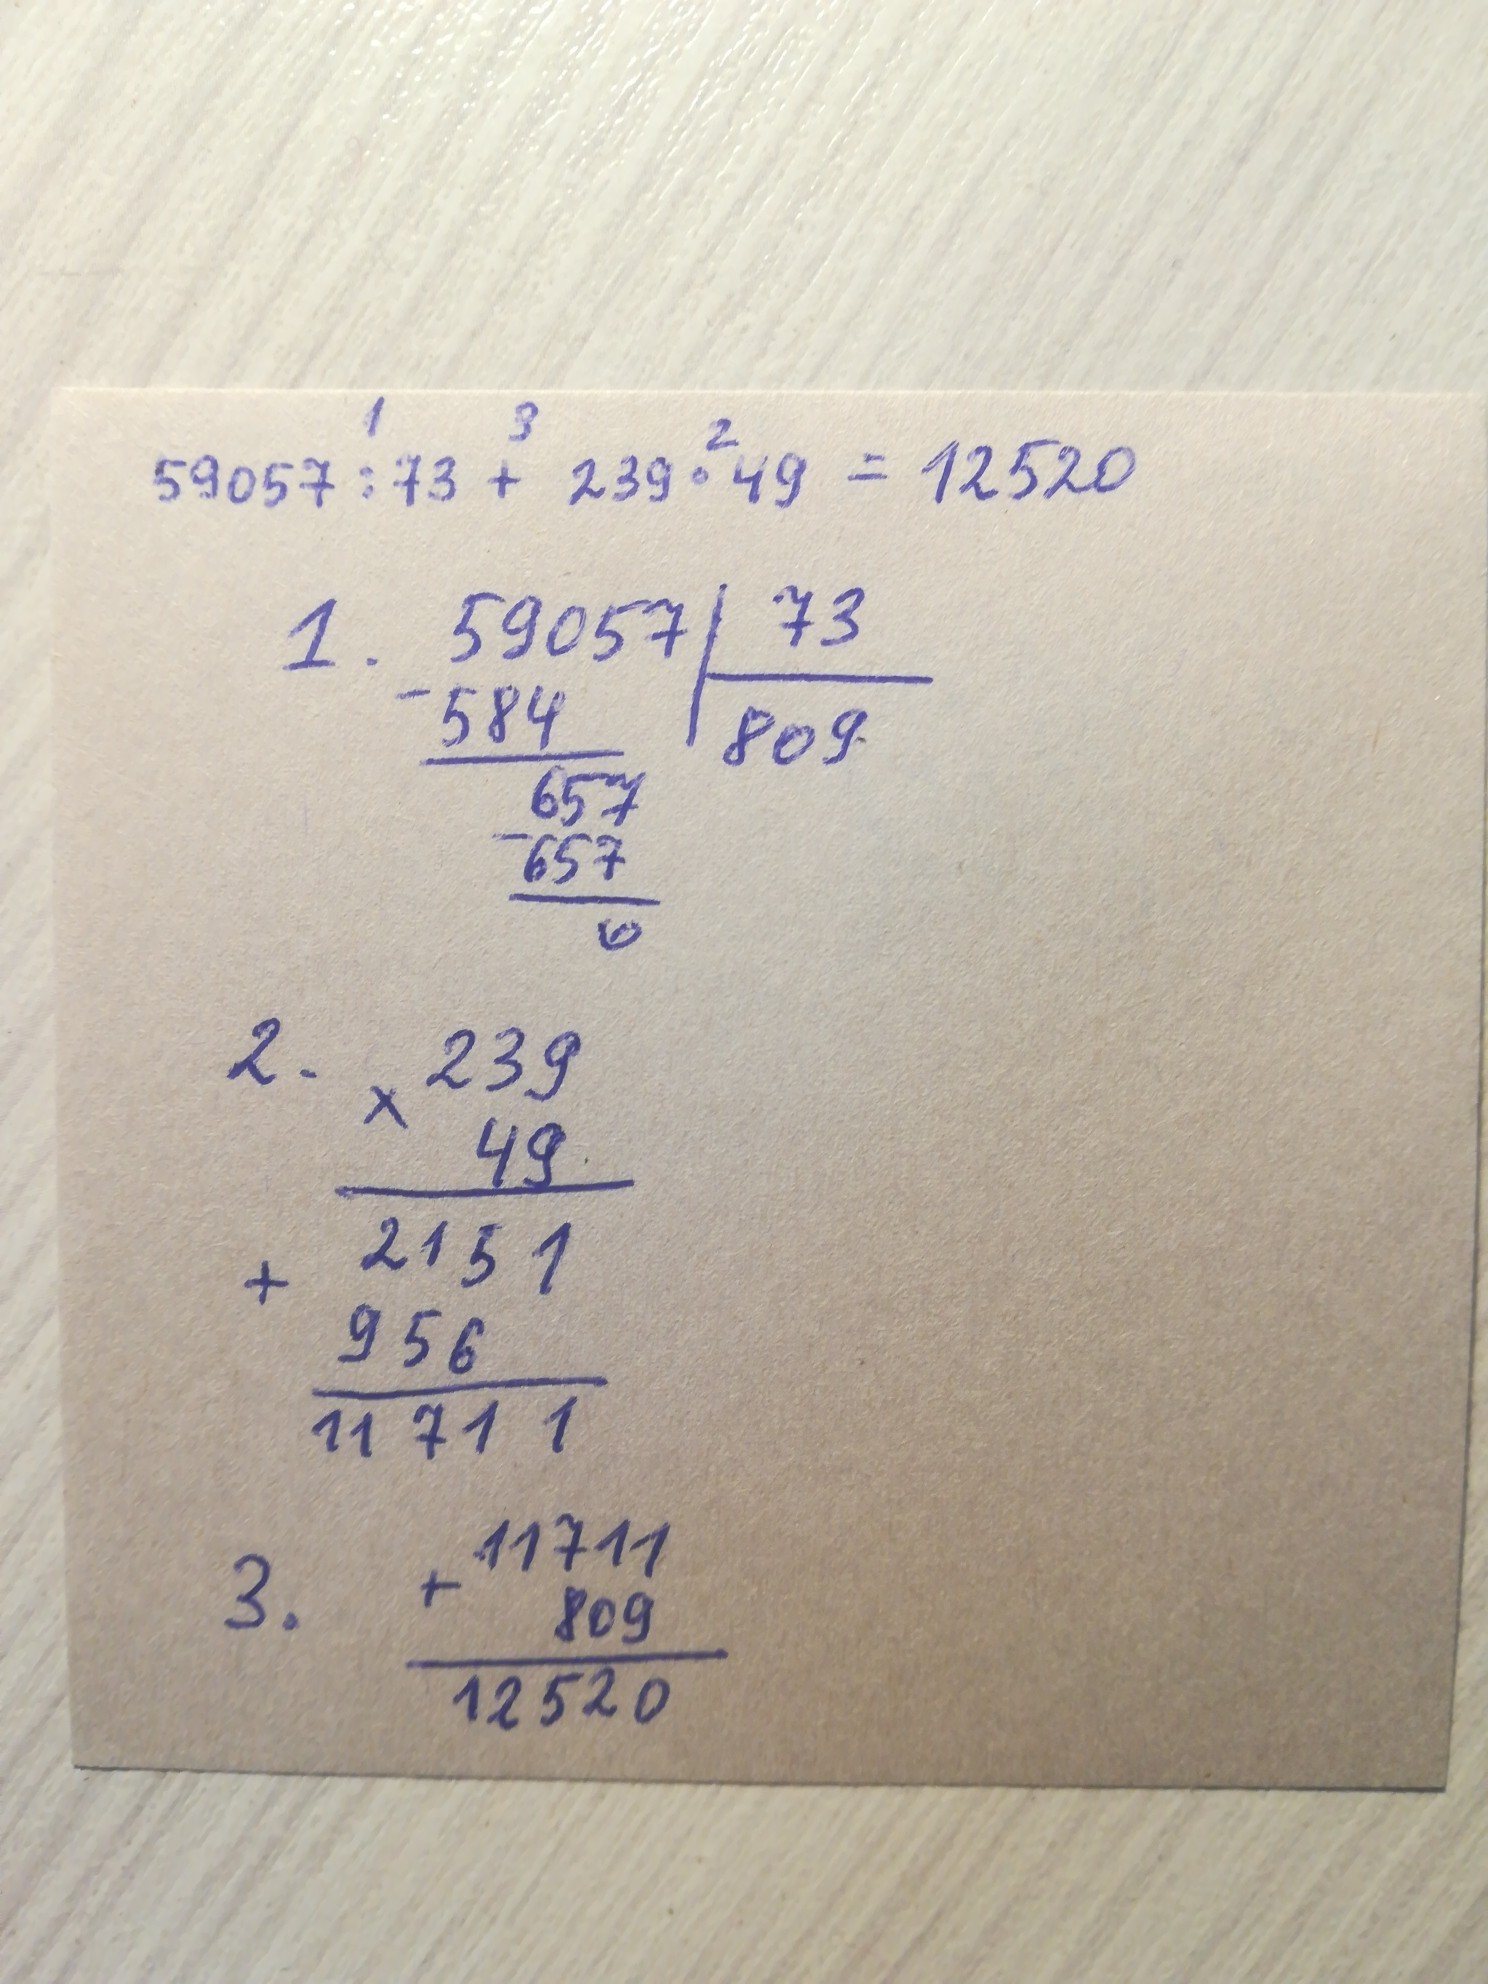 1 3 2
59057 : 73 + 239 · 49 = 12520
1. 59057 | 73
- 584 809
657
- 657
0
2. × 239
49
2151
+
956
11711
3. + 11711
809
12520